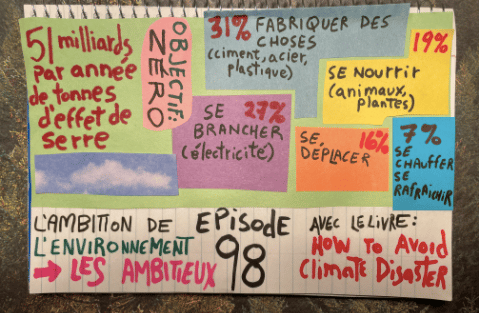 51 milliards
par année
de tonnes
d'effet de
serre
OBJECTIF
ZÉRO
31% FABRIQUER DES
CHOSES
(ciment, acier,
plastique)
19%
SE NOURRIR
(animaux,
plantes)
SE 27%
BRANCHER
(électricité)
SE 16%
DÉPLACER
7%
SE
CHAUFFER
SE
RAFRAICHIR
L'AMBITION DE
L'ENVIRONNEMENT
→ LES AMBITIEUX
EPISODE
98
AVEC LE LIVRE:
HOW TO AVOID
CLIMATE DISASTER